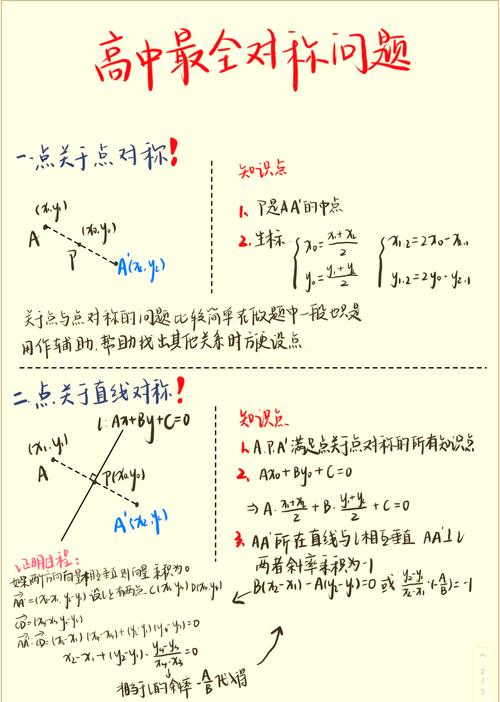 高中最全对称问题
一.点关于点对称!
(x₁,y₁)
A
(x₀,y₀)
P
A'(x₂,y₂)
知识点
1. P是AA'的中点
2. 坐标 { x₀=(x₁+x₂)/2 { x₁.₂=2x₀-x₂.₁
y₀=(y₁+y₂)/2 y₁.₂=2y₀-y₂.₁
关于点与点对称的问题比较简单在做题中一般也只是
用作辅助,帮助找出其他关系时方便设点
二.点关于直线对称!
l:Ax+By+C=0
(x₁,y₁)
A
P(x₀,y₀)
A'(x₂,y₂)
知识点
1. A.P.A'满足点关于点对称的所有知识点
2. Ax₀+By₀+C=0
⇒A·(x₁+x₂)/2+B·(y₁+y₂)/2+C=0
3. AA'所在直线与l相互垂直 AA'⊥l
两者斜率乘积为-1
B(x₂-x₁)-A(y₂-y₁)=0 或 (y₂-y₁)/(x₂-x₁)·(-A/B)=-1
证明过程:
如果两个方向向量相互垂直则向量乘积为0
AA'=(x₂-x₁,y₂-y₁) 设l上有两点C(x₃,y₃) D(x₄,y₄)
CD=(x₄-x₃,y₄-y₃)
AA'·CD=(x₂-x₁)(x₄-x₃)+(y₂-y₁)(y₄-y₃)=0
x₂-x₁+(y₂-y₁)·(y₄-y₃)/(x₄-x₃)=0
相当于l的斜率-A/B代入得
2/5